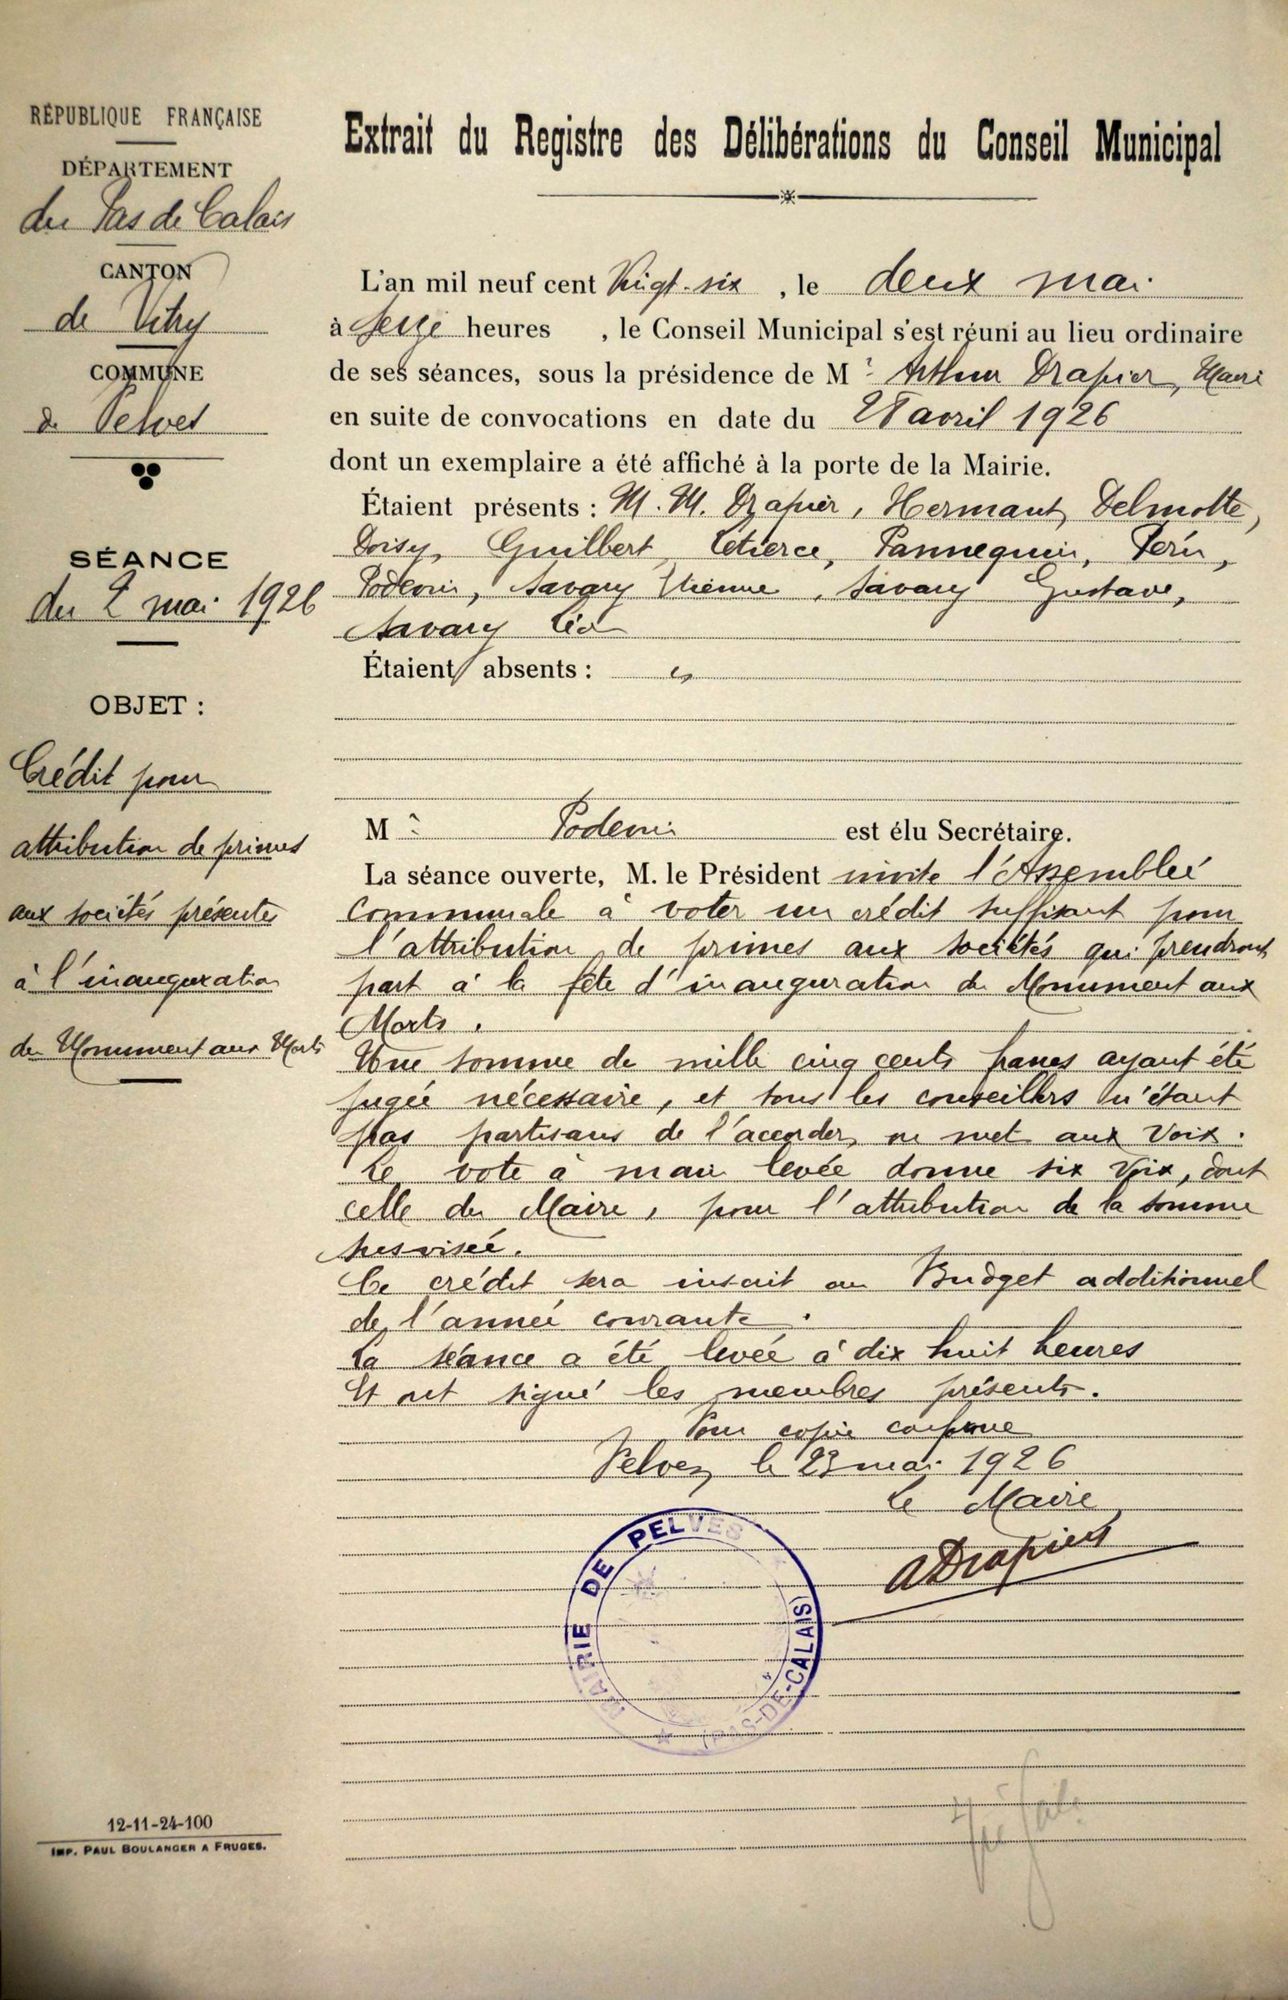 RÉPUBLIQUE FRANÇAISE
DÉPARTEMENT
du Pas de Calais
CANTON
de Vitry
COMMUNE
de Pelves
SÉANCE
du 2 mai 1926
OBJET :
Crédit pour
attribution de primes
aux sociétés présentes
à l'inauguration
du Monument aux Morts
12-11-24-100
IMP. PAUL BOULANGER A FRUGES.
Extrait du Registre des Délibérations du Conseil Municipal
L'an mil neuf cent Vingt-six, le deux mai
à seize heures , le Conseil Municipal s'est réuni au lieu ordinaire
de ses séances, sous la présidence de Mr Arthur Drapier, Maire
en suite de convocations en date du avril 1926
dont un exemplaire a été affiché à la porte de la Mairie.
Étaient présents : M. M. Drapier, Hermant, Delmotte,
Doisy, Guilbert, Létierce, Pannequin, Perin,
Podevin, Savary Etienne, Savary Gustave,
Savary Léon
Étaient absents :
M r Podevin est élu Secrétaire.
La séance ouverte, M. le Président invite l'Assemblée
communale à voter un crédit suffisant pour
l'attribution de primes aux sociétés qui prendront
part à la fête d'inauguration du Monument aux
Morts.
Une somme de mille cinq cents francs ayant été
jugée nécessaire, et tous les conseillers n'étant
pas partisans de l'accorder, on met aux voix.
Le vote à main levée donne six voix, dont
celle du Maire, pour l'attribution de la somme
susvisée.
Ce crédit sera inscrit au Budget additionnel
de l'année courante.
La séance a été levée à dix huit heures
Et ont signé les membres présents.
Pour copie conforme
Pelves, le 23 mai 1926
Le Maire
ADrapier
MAIRIE DE PELVES
(PAS-DE-CALAIS)